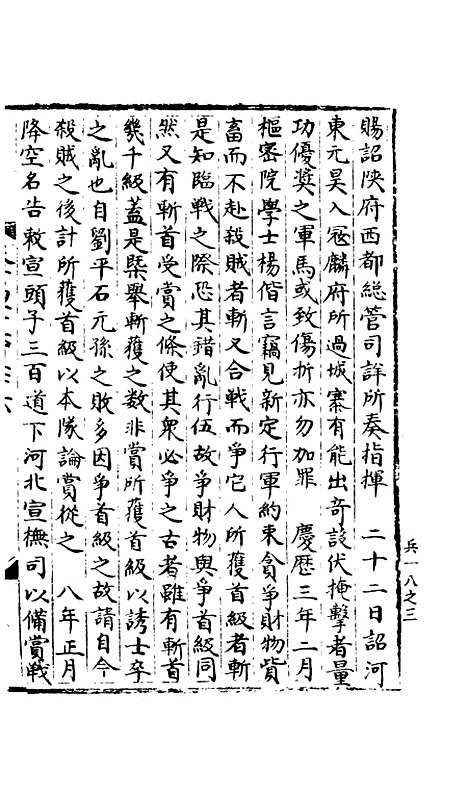 賜詔陝府西都總管司詳所奏指揮　二十二日詔河
東元昊入寇麟府所過城寨有能出奇設伏掩擊者量
功優獎之軍馬或致傷折亦勿加罪　慶歷三年二月
樞密院學士楊偕言竊見新定行軍約束貪爭財物貲
畜而不赴殺賊者斬又合戰而爭它人所獲首級者斬
是知臨戰之際恐其錯亂行伍故爭財物與爭首級同
然又有斬首受賞之條使其衆必爭之古者雖有斬首
幾千級蓋是槩舉斬獲之數非賞所獲首級以誘士卒
之亂也自劉平石元孫之敗多因爭首級之故請自今
殺賊之後計所獲首級以本隊論賞從之　八年正月
降空名告敕宣頭子三百道下河北宣撫司以備賞戰
兵一八之三